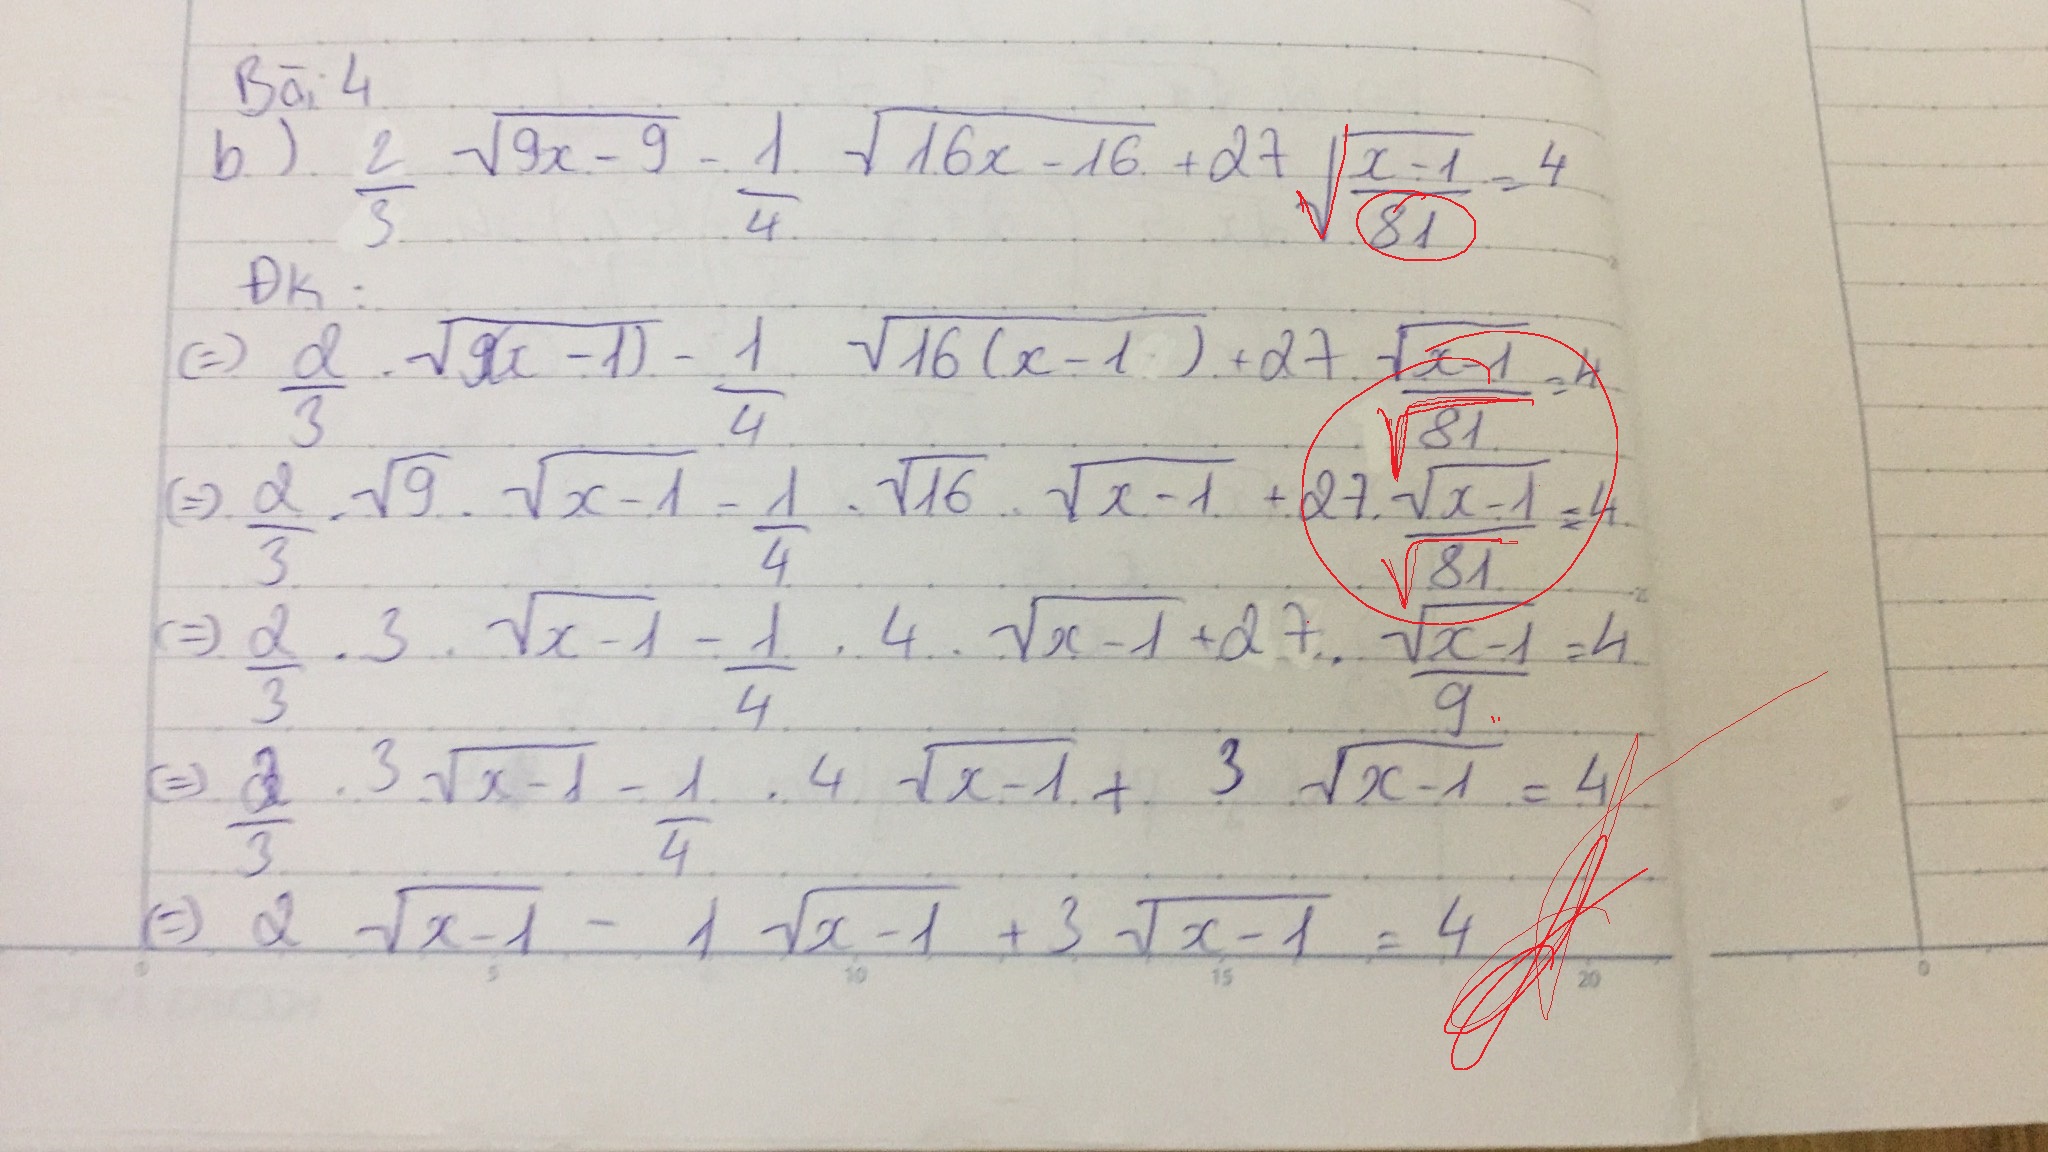 Bài 4
b) 2/3 √(9x-9) - 1/4 √(16x-16) + 27 √((x-1)/81) = 4
ĐK:
(=) 2/3 . √(9(x-1)) - 1/4 √(16(x-1)) + 27 . √(x-1)/√81 = 4
(=) 2/3 . √9 . √(x-1) - 1/4 . √16 . √(x-1) + 27 . √(x-1)/√81 = 4
(=) 2/3 . 3 . √(x-1) - 1/4 . 4 . √(x-1) + 27 . √(x-1)/9 = 4
(=) 2/3 . 3 √(x-1) - 1/4 . 4 √(x-1) + 3 √(x-1) = 4
(=) 2 √(x-1) - 1 √(x-1) + 3 √(x-1) = 4
0 5 10 15 20 0